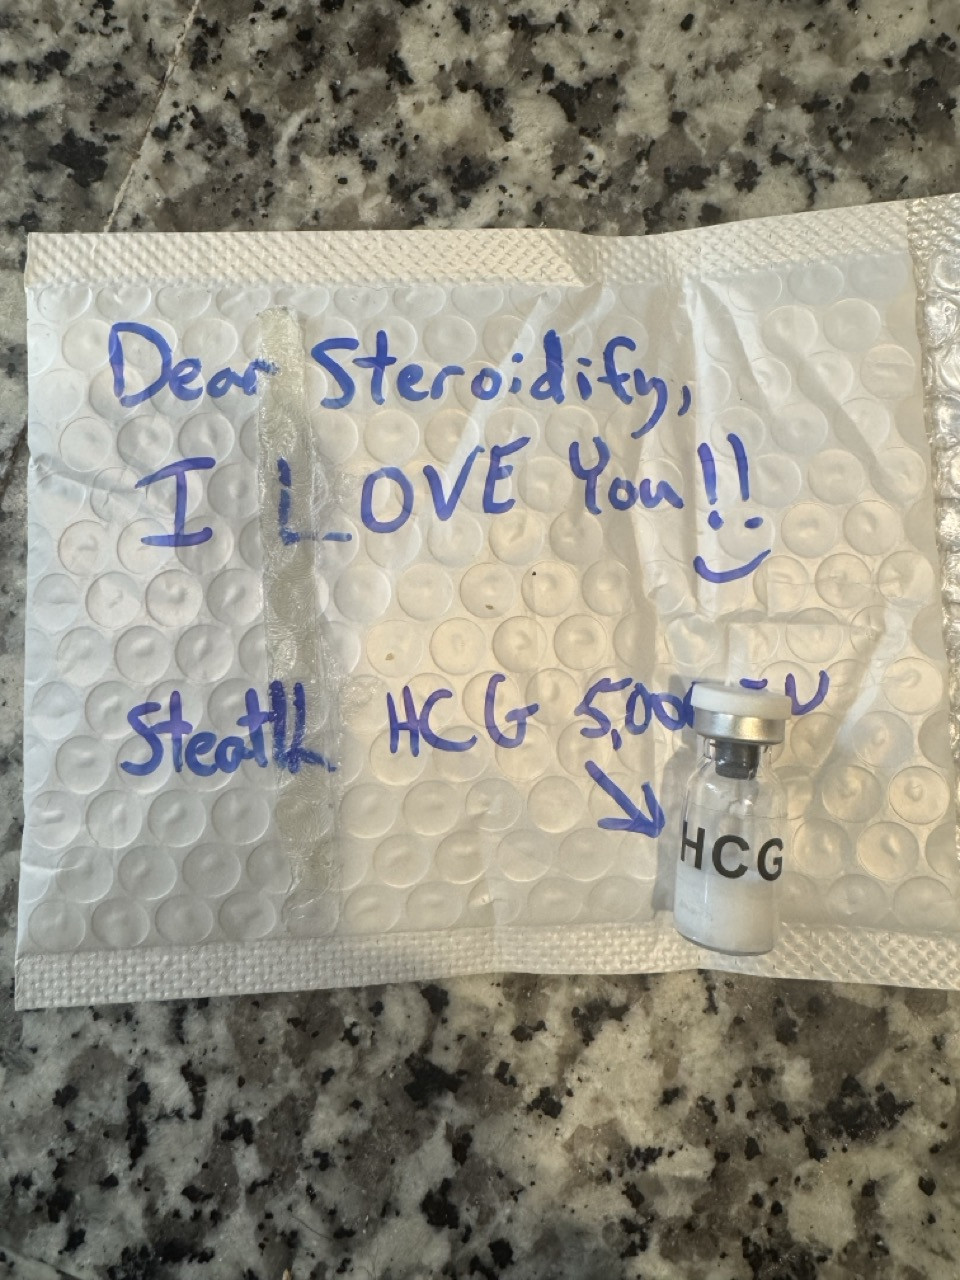 Dear Steroidify,
I LOVE You!!
Stealth HCG 5,000 IU
HCG